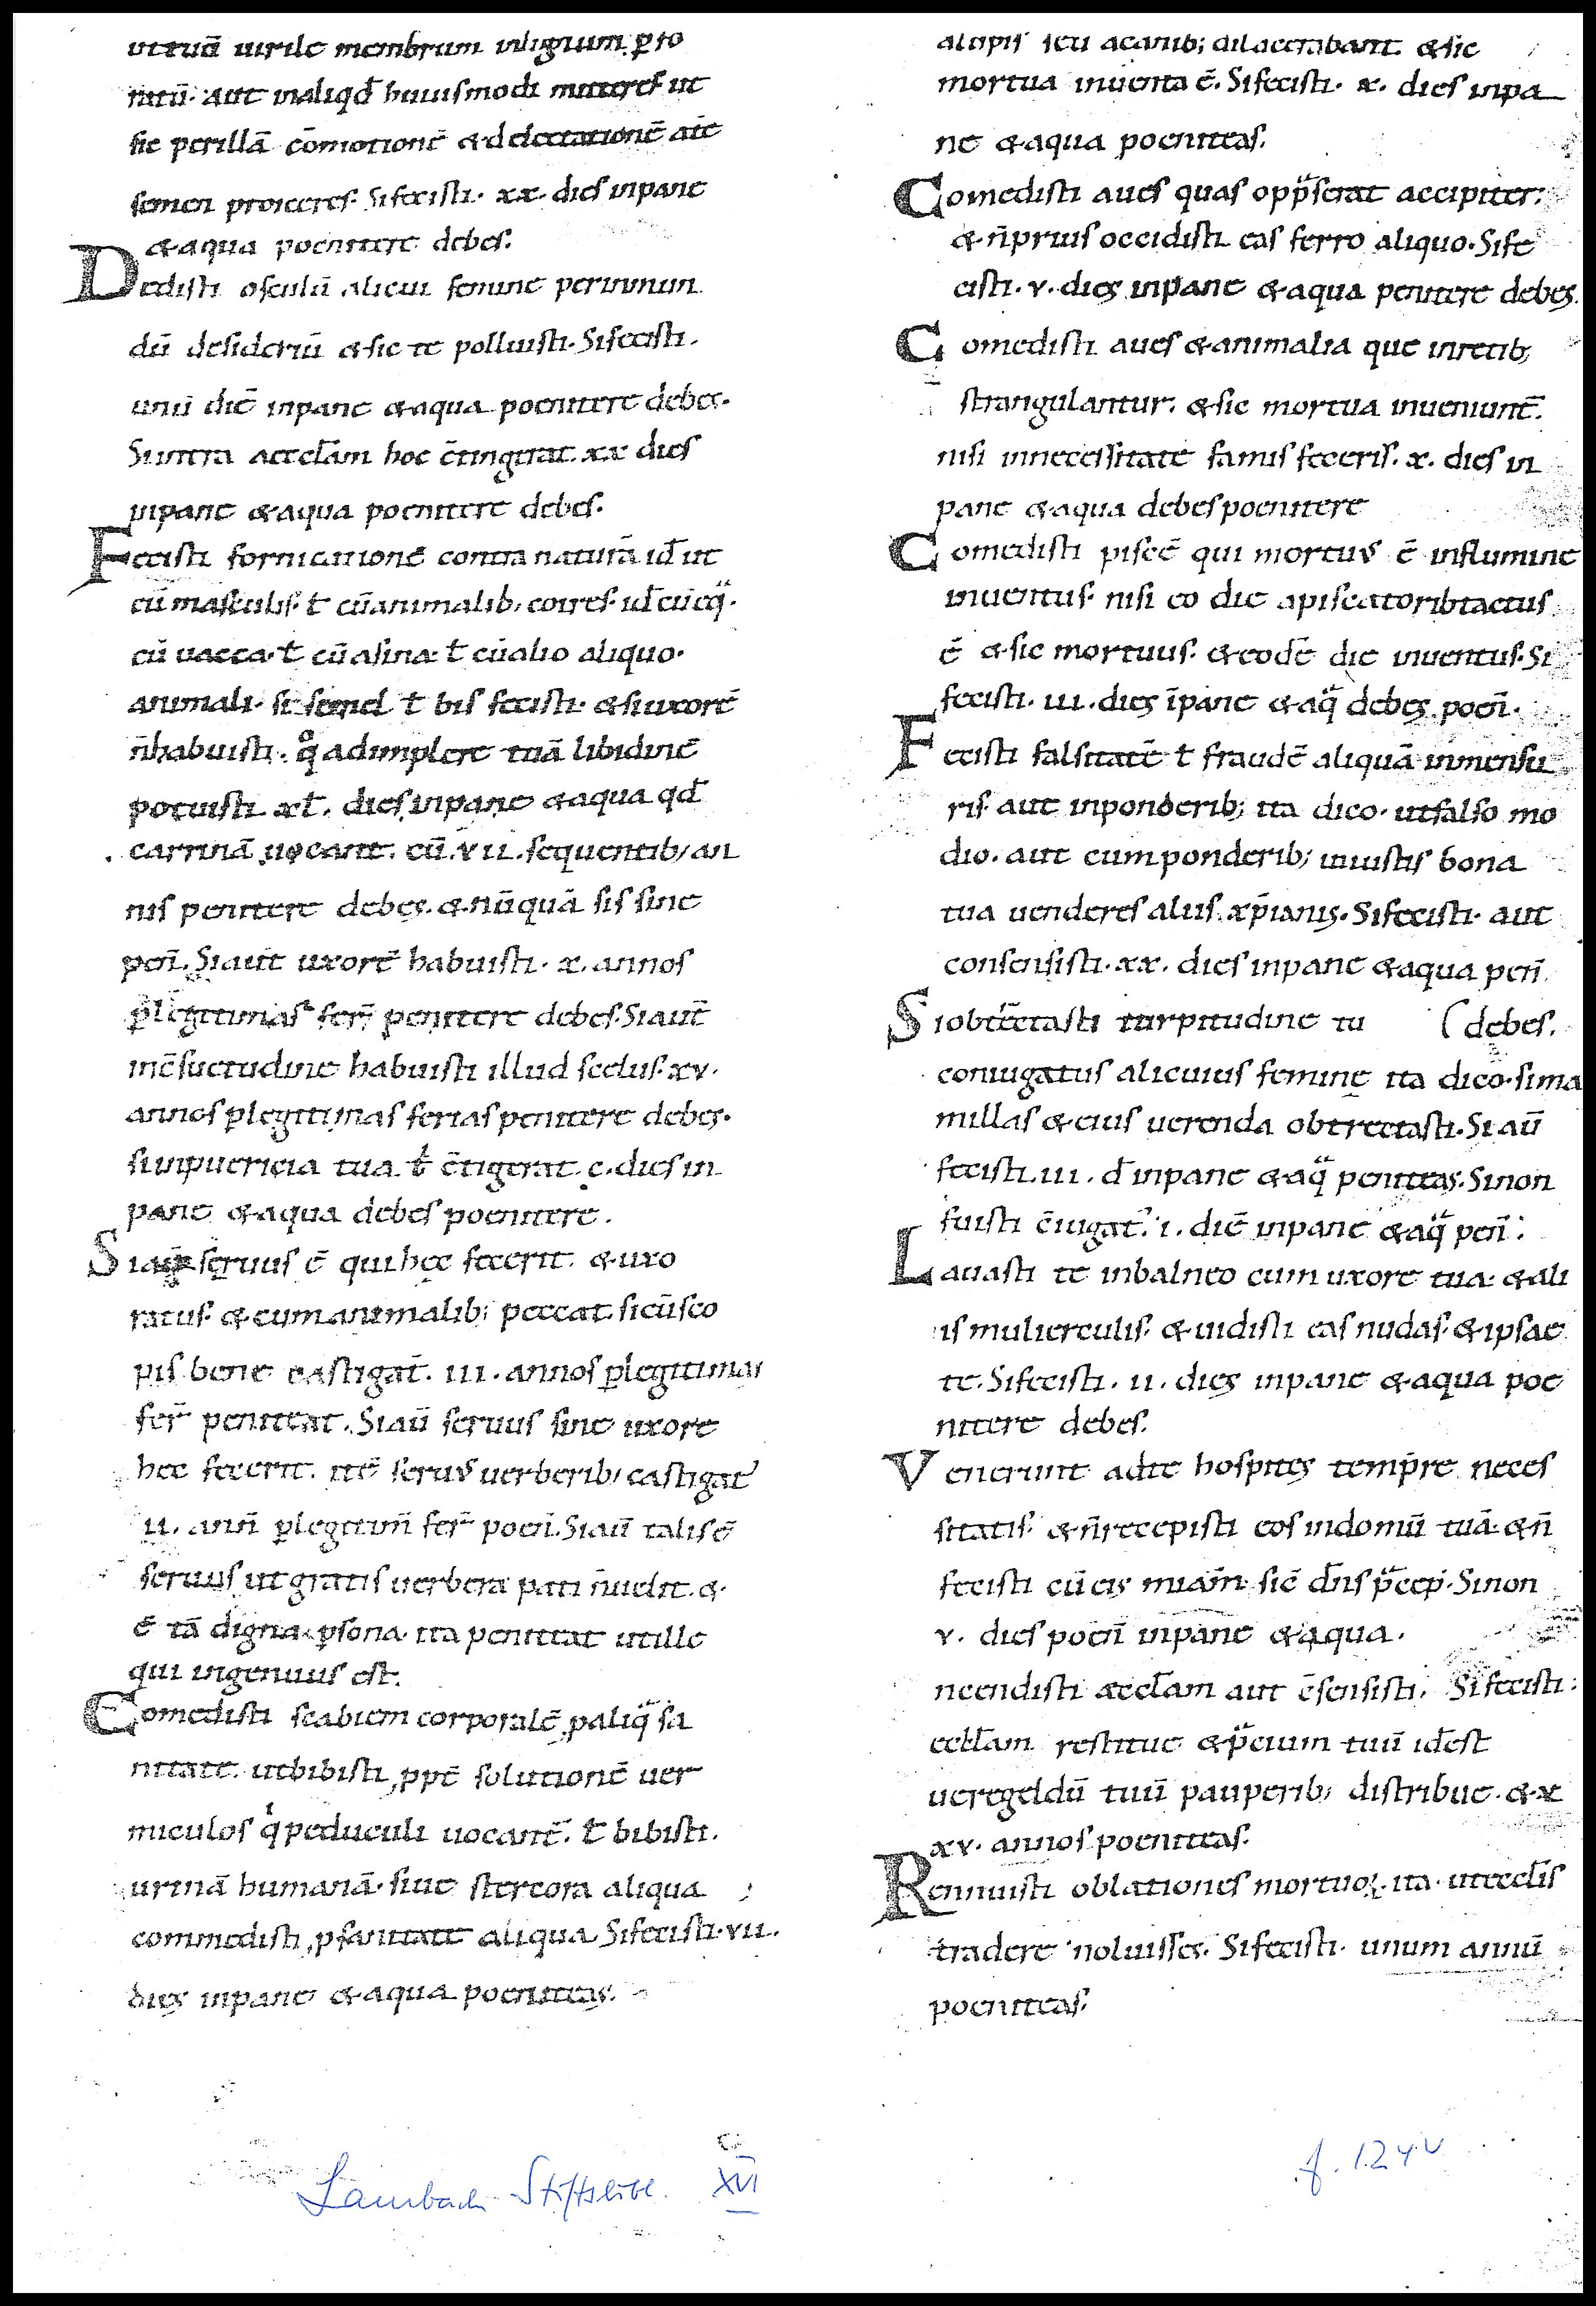 uttuā uirile membrum inlignum p̄fo
ratū· aut inaliqđ huiusmodi mitteres ut
sic perillā cōmotionē & delectationē at̄e
semen proiceres· Si fecisti· xx· dies inpane
& aqua poenitere debes.
Dedisti osculū alicui femine perinmun
dū desideriū & sic te polluisti· Si fecisti.
unū diē inpane & aqua poenitere debes·
Si intra aeccłam hoc c̄tingerat· xx dies
inpane & aqua poenitere debes.
Fecisti fornicationē contra naturā id̄ ut
cū masculis· ł cū animalib; coires· id̄ cū eq̄·
cū uacca· ł cū asina· ł cū alio aliquo·
animali· si semel ł bis fecisti· & si uxorē
n̄ habuisti· q̊ adimplere tuā libidinē
potuisti xl· dies inpane & aqua qđ
carrinā uocant· cū· vii· sequentib; an
nis penitere debes· & nūquā sis sine
peni̅· Si aut̄ uxorē habuisti· x· annos
p̱ legitimas fer̄ penitere debes· Si aut̄
inc̄suetudine habuisti illud scelus· xv·
annos p̱ legitimas ferias penitere debes·
si inpuericia tua t̄ c̄tigerat· c· dies in
pane & aqua debes poenitere.
Si aū seruus ē qui hęc fecerit· & uxo
ratus· & cum animalib; peccat· sic ūsco
pis bene castigat̄· iii· annos p̱ legitimas
fer̄ peniteat· Si aū seruus sine uxore
hec fecerit· itē seruꝰ uerberib; castigat̄
ii· ann̄ p̱ legitim̄ fer̄ poeni̅· Si aū talis ē
seruus ut gratis uerbera pati n̄ uelit· &
ē tā digna p̱sona· ita peniteat ut ille
qui ingenuus est.
Comedisti scabiem corporalē ꝓ aliq̈ sa
nitate· ut bibisti ꝓptē solutionē uer
miculos q̇ peduculi uocant̄· ł bibisti·
urinā humanā· siue stercora aliqua
commedisti ꝓ sanitate aliqua Si fecisti· vii·
dies inpane & aqua poeniteas·
alupis seu acanib; dilacerabant· & sic
mortua inuenta ē· Si fecisti· x· dies inpa
ne & aqua poeniteas·
Comedisti aues quas opp̈serat accipiter·
& n̄ prius occidisti eas ferro aliquo· Si fe
cisti· v· dies inpane & aqua penitere debes·
Comedisti aues & animalia que inretib;
strangulantur· & sic mortua inueniunt̄·
nisi innecessitate famis feceris· x· dies in
pane & aqua debes poenitere
Comedisti piscē qui mortuꝰ ē influmine
inuentus· nisi eo die apiscatorib tactus
ē & sic mortuus· & eodē die inuentus· Si
fecisti· iii· dies īpane & aq̈ debes poeni̅·
Fecisti falsitatē ł fraudē aliquā inmensu
ris· aut inponderib; ita dico· ut falso mo
dio· aut cum ponderib; iniustis bona
tua uenderes aliis xp̄ianis· Si fecisti· aut
consensisti· xx· dies inpane & aqua peni̅
Si obtrectasti turpitudine tu ( debes.
coniugatus alicuius femine ita dico· si ma
millas & eius uerenda obtrectasti· Si aū
fecisti· iii· đ inpane & aq̈ peniteas· Si non
fuisti c̄iugat̄· i· diē inpane & aq̈ peni̅·
Lauasti te inbalneo cum uxore tua· & ali
is mulierculis· & uidisti eas nudas· & ipsae
te· Si fecisti· ii· dies inpane & aqua poe
nitere debes·
Venerunt adte hospites temp̄re neces
sitatis· & n̄ recepisti eos indomū tuā· & n̄
fecisti cū eis miām· sic̄ dn̄s p̈cep̱· Si non
v· dies poeni̅ inpane & aqua·
ncendisti aeccłam aut c̄sensisti· Si fecisti·
eccłam restitue & p̈cium tuū id̄ est
ueregeldū tuū pauperib; distribue· & x
xv· annos poeniteas·
Rennuisti oblationes mortuoꝝ ita· ut eccłis
tradere noluisses· Si fecisti· unum annū
poeniteas·
Lambach Stiftsbibl. XVI
f. 124v